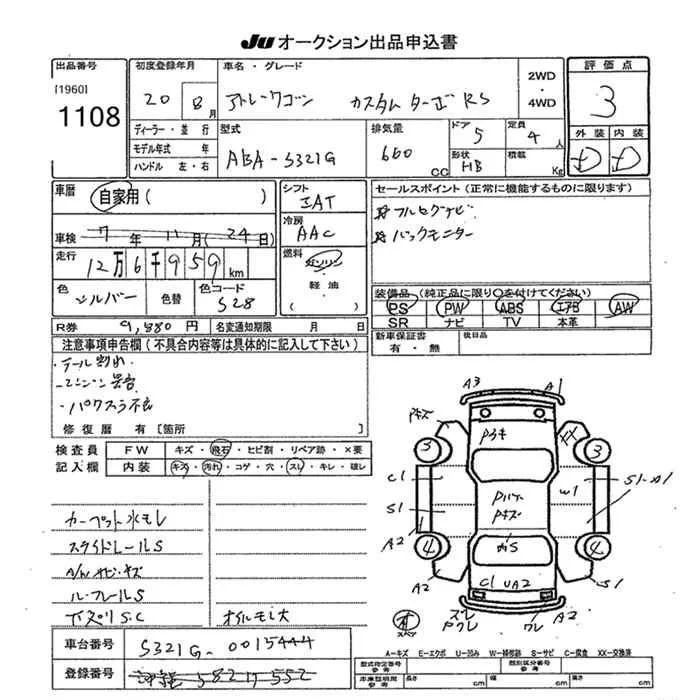 JU オークション出品申込書
出品番号
[1960]
1108
初度登録年月
20 8月
車名・グレード
アトレーワゴン カスタムターボRS
2WD
・
4WD
評価点
3
外装 内装
D D
ディーラー・並行
モデル年式 年
ハンドル 左・右
型式
ABA-S321G
排気量
660 CC
ドア 5
形状 HB
定員 4 人
積載 Kg
車歴
自家用( )
シフト
IAT
冷房
AAC
燃料
ガソリン
・
軽油
・
( )
車検 7年 11月(24日)
走行 12万6千959km
色 シルバー 色替 色コード S28
R券 9,880円 名変通知期限 月 日
セールスポイント(正常に機能するものに限ります)
☆フルセグナビ
☆バックモニター
装備品(純正品に限り○を付けてください)
PS PW ABS エアB AW
SR ナビ TV 本革
新車保証書
有・無
後日品
注意事項申告欄(不具合内容等は具体的に記入して下さい)
・テール割れ
・エンジン異音
・パワスラ不良
修復歴 有[箇所 ]
検査員
記入欄
FW キズ・飛石・ヒビ割・リペア跡・×要
内装 キズ・汚れ・コゲ・穴・スレ・キレ・破レ
カーペット水モレ
スライドレールS
A/Wサビ・キズ
ルーフレールS
下スペリS.C オイルモレ大
車台番号 S321G-0015444
登録番号
A3 A1
Pキズ
XX
3 3
C1
S1
A2
W1
S1-A1
4 4
A2
S1
C1 UA2
ズレ
ワレ
A2
スペア
A-キズ E-エクボ U-凹み W-補修跡 S-サビ C-腐食 XX-交換済
型式指定番号
参考
類別区分番号
参考
車庫証明用
参考
長さ cm 幅 cm 高さ cm